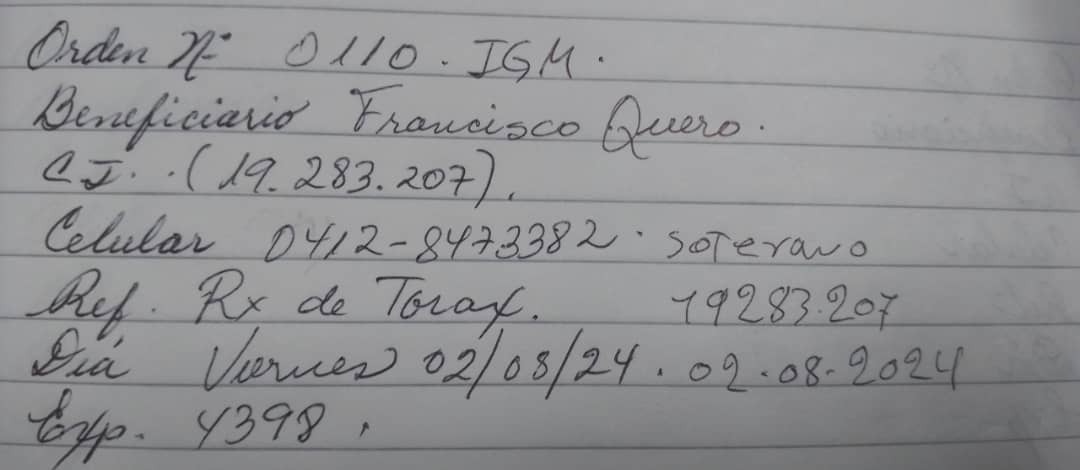 Orden Nº 0110. IGM.
Beneficiario Francisco Quero.
C.I. (19.283.207).
Celular 0412-8473382. soterano
Ref. Rx de Torax. 19283.207
Día Viernes 02/08/24. 02.08.2024
Exp. 4398.